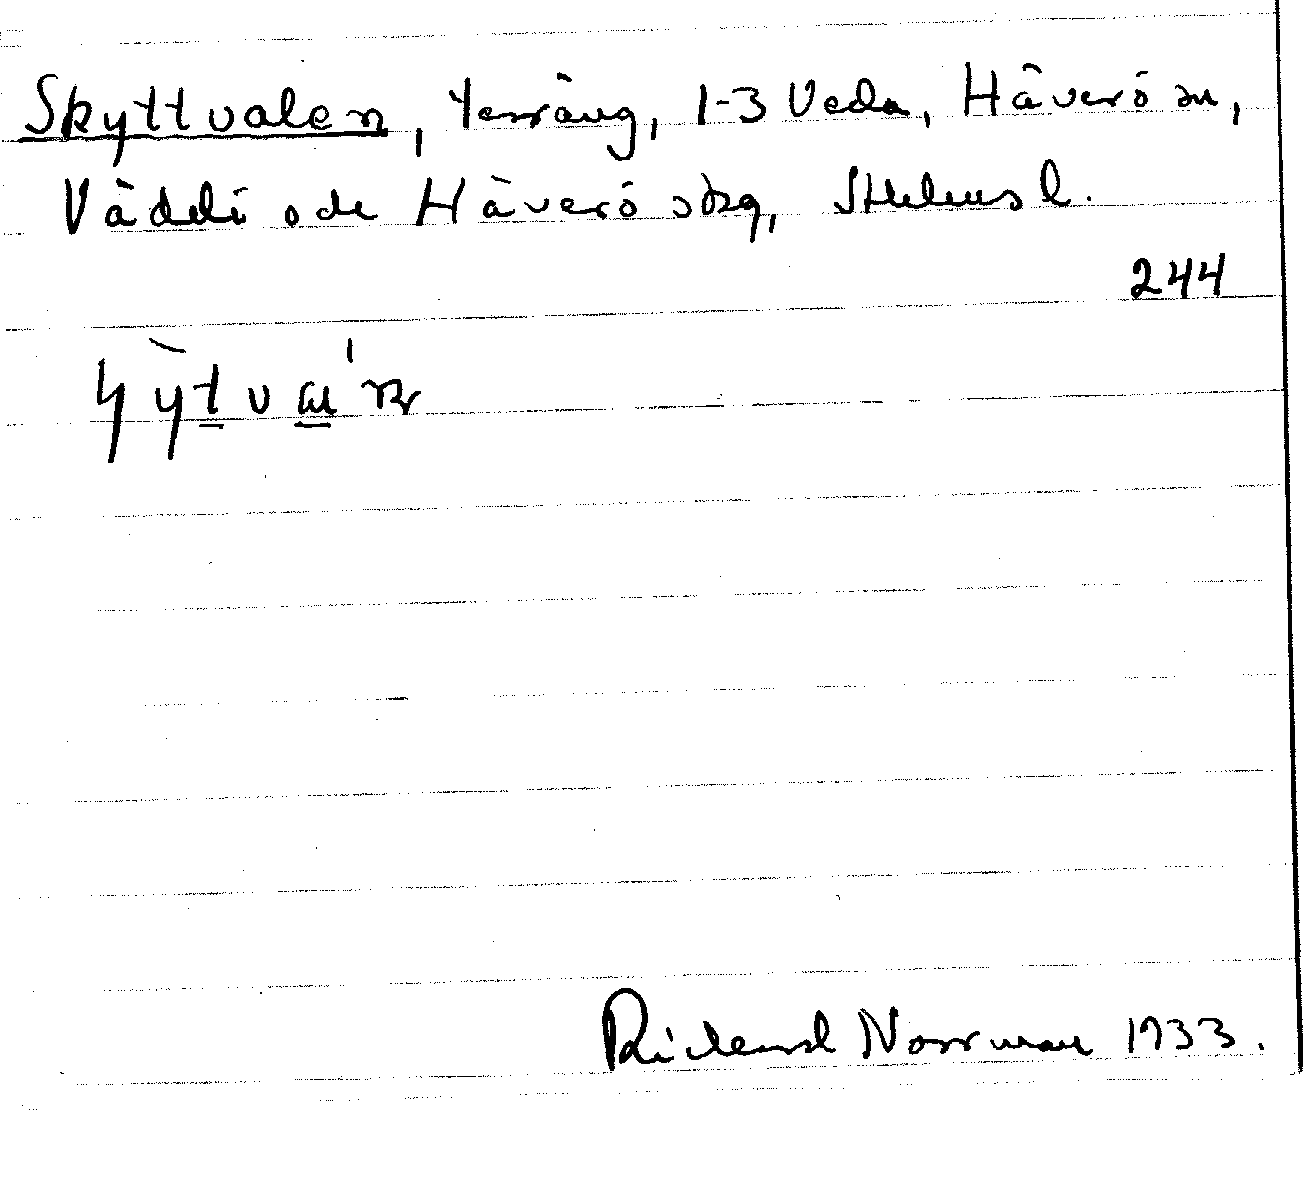 Skyttvalen, terräng, 1-3 Veda, Häverö sn,
Väddö och Häverö skg, Sthlms l.
244
Richard Norrman 1933.